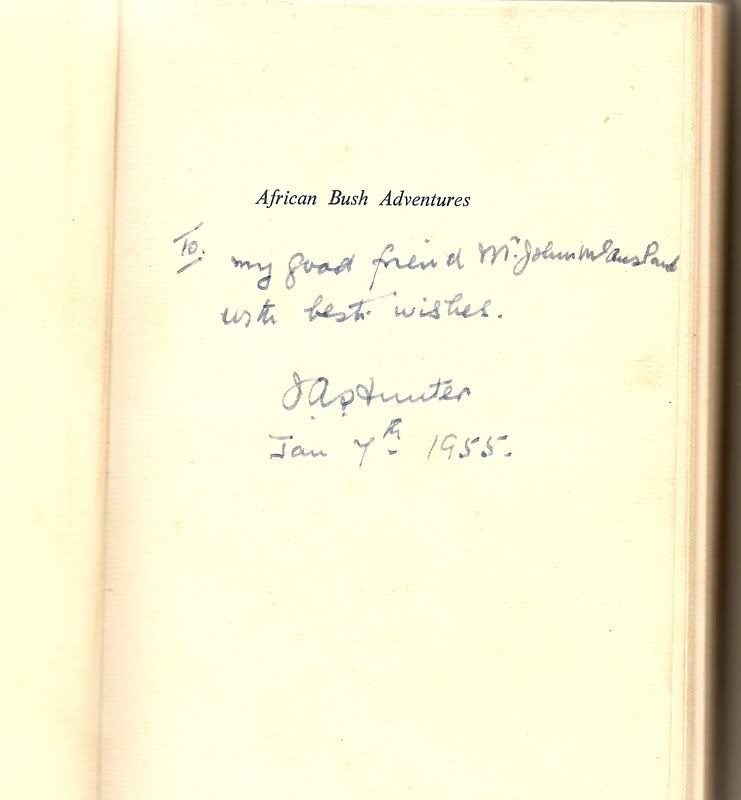 African Bush Adventures
To: my good friend Mr. John McAusland
with best wishes.
J A Hunter
Jan 7th 1955.